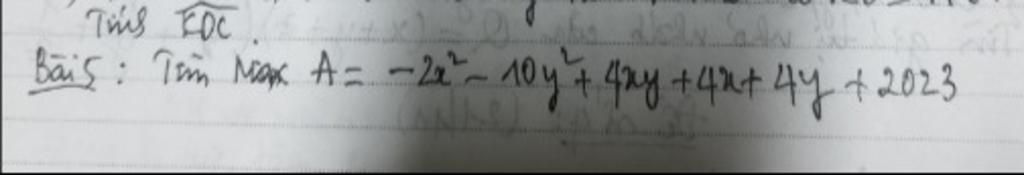 Tính EDC.
Bài 5: Tìm Max A = -2x² - 10y² + 4xy + 4x + 4y + 2023